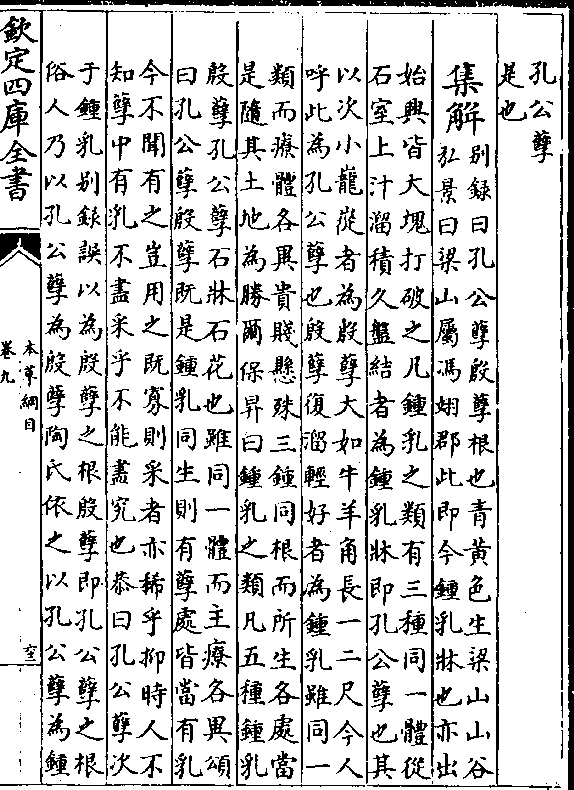 孔公孽
是也
集解 别錄曰孔公孽殷孽根也青黄色生梁山山谷
弘景曰梁山屬馮翊郡此即今鍾乳牀也亦出
始興皆大塊打破之凡鍾乳之類有三種同一體從
石室上汁溜積久盤結者為鍾乳牀即孔公孽也其
以次小龍從者為殷孽大如牛羊角長一二尺今人
呼此為孔公孽也殷孽復溜輕好者為鍾乳雖同一
類而療體各異貴賤懸殊三鍾同根而所生各處當
是隨其土地為勝爾保昇曰鍾乳之類凡五種鍾乳
殷孽孔公孽石牀石花也雖同一體而主療各異頌
曰孔公孽殷孽既是鍾乳同生則有孽處皆當有乳
今不聞有之豈用之既寡則采者亦稀乎抑時人不
知孽中有乳不盡采乎不能盡究也恭曰孔公孽次
于鍾乳别錄誤以為殷孽之根殷孽即孔公孽之根
俗人乃以孔公孽為殷孽陶氏依之以孔公孽為鍾
欽定四庫全書
本草綱目
卷九